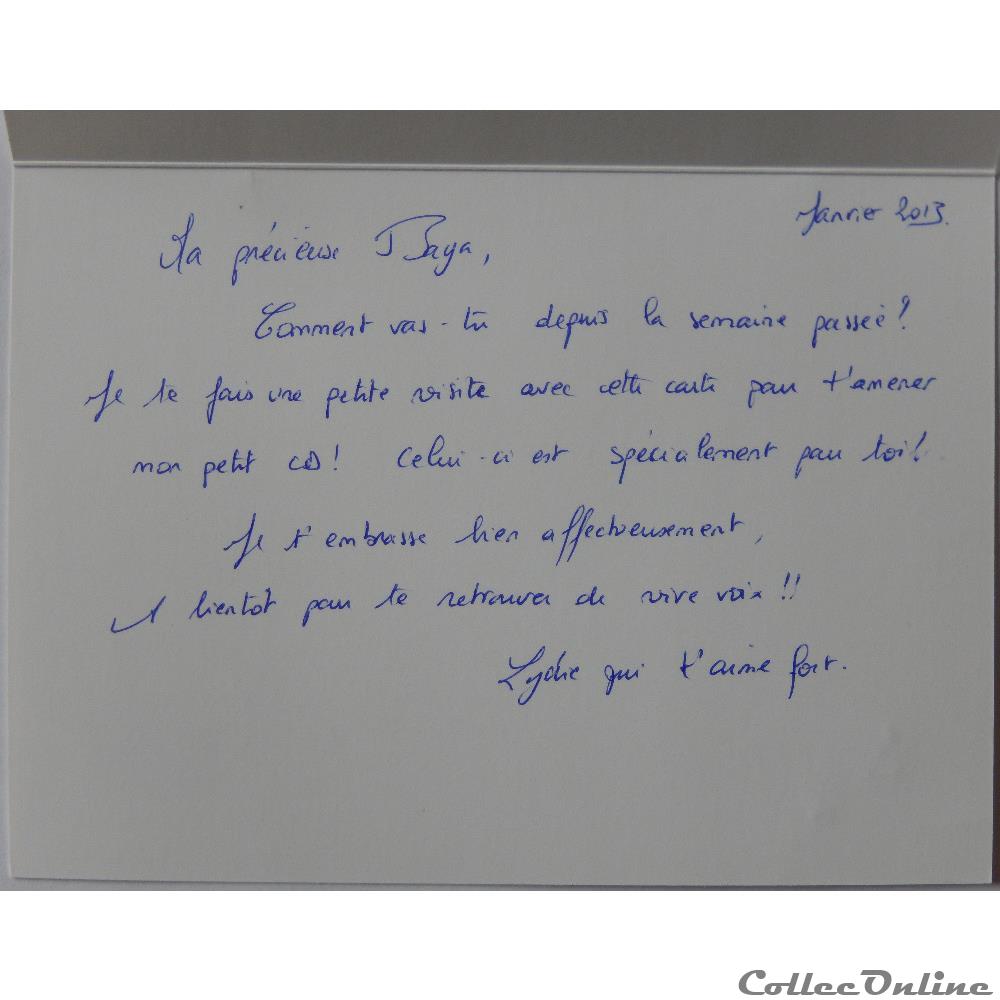 Janvier 2013.
Ma précieuse Baya,
Comment vas-tu depuis la semaine passée?
Je te fais une petite visite avec cette carte pour t'amener
mon petit CD! Celui-ci est spécialement pour toi!
Je t'embrasse bien affectueusement,
A bientôt pour te retrouver de vive voix!!
Lydie qui t'aime fort.
CollecOnline